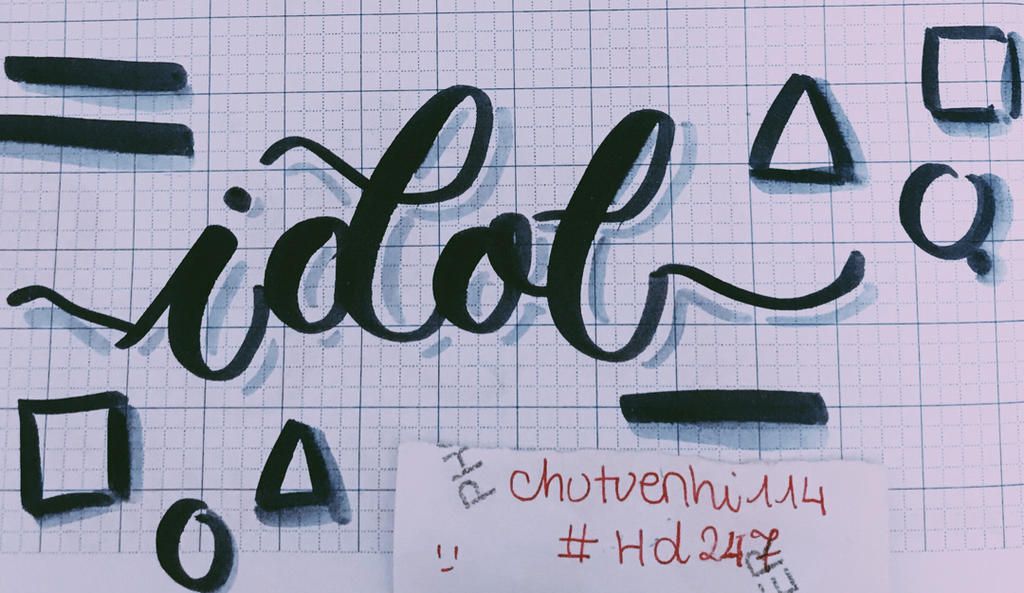 idol
chutuenhi114
#Hd247